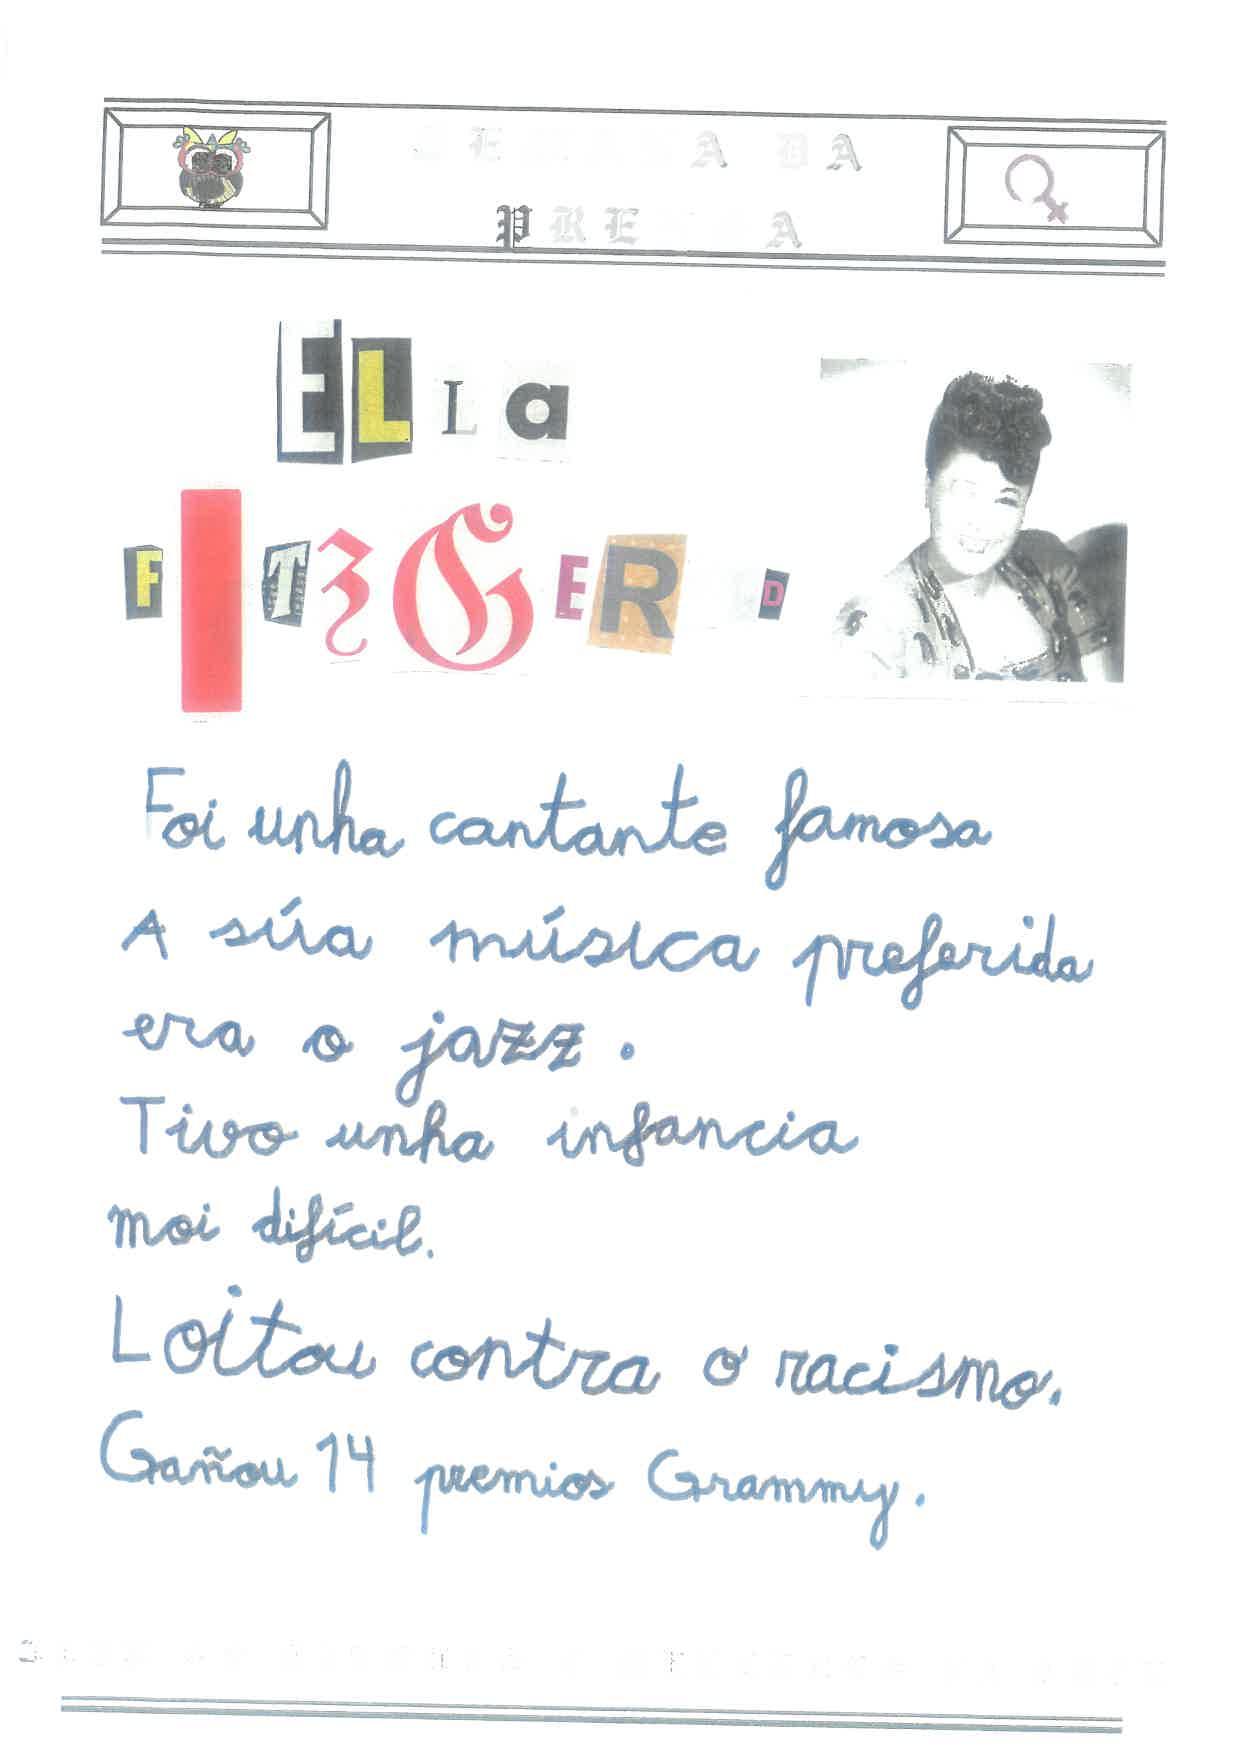 DA
PRE A
ELLa
FITZGER D
Foi unha cantante famosa
A súa música preferida
era o jazz.
Tivo unha infancia
moi difícil.
Loitou contra o racismo.
Gañou 14 premios Grammy.